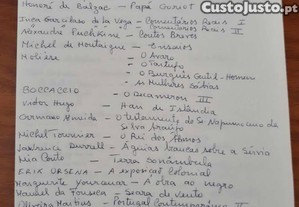 Honoré de Balzac - Papá Goriot
CustoJusto.pt
Inca Garcilaso de la Vega - Comentários Reais I
Comentários Reais II
Alexandre Puchkine - Contos Breves
Michel de Montaigne - Ensaios
Molière - O Avaro
O Tartufo
O Burguês Gentil-Homem
As Mulheres Sábias
BOCCACCIO - O Decameron III
Victor Hugo - Han de Islândia
Germano Almeida - O testamento do Sr. Napumoceno da Silva Araújo
Michel Tournier - O Rei dos Álamos
Lawrence Durrell - Águias brancas sobre a Sérvia
Mia Couto - Terra Sonâmbula
ERIK ORSENA - A exposição Colonial
Marguerite Yourcenar - A obra ao negro
Manuel da Fonseca - Seara de Vento
Oliveira Martins - Portugal Contemporâneo